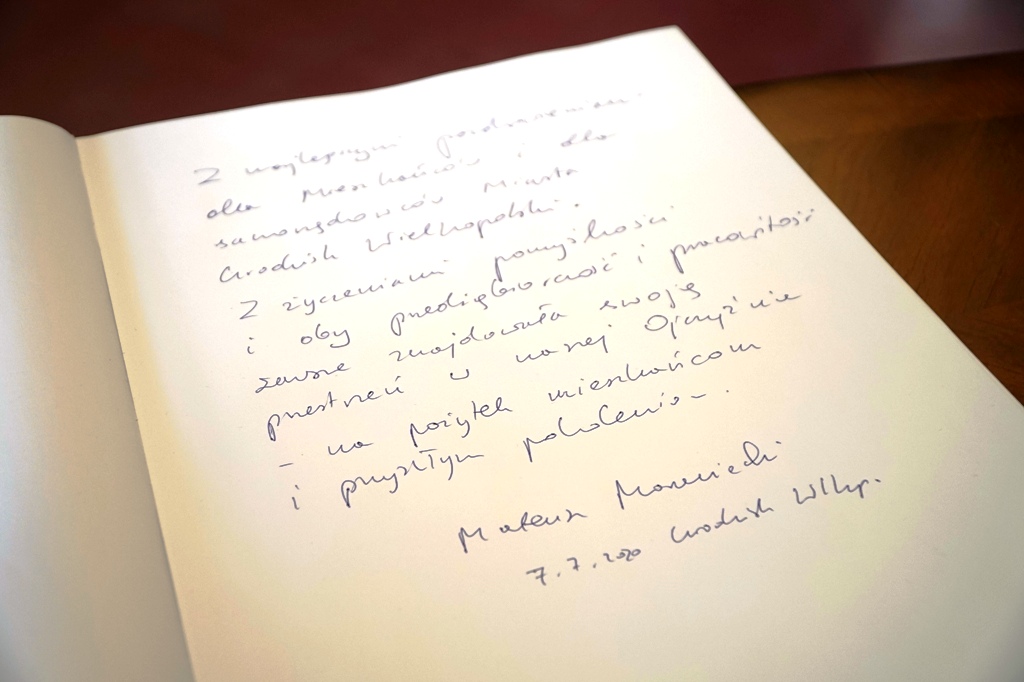 Z najlepszymi pozdrowieniami
dla Mieszkańców i dla
samorządowców Miasta
Grodzisk Wielkopolski.
Z życzeniami pomyślności
i oby przedsiębiorczość i pracowitość
zawsze znajdowała swoją
przestrzeń w naszej Ojczyźnie
– na pożytek mieszkańcom
i przyszłym pokoleniom.
Mateusz Morawiecki
7.7.2020 Grodzisk Wlkp.